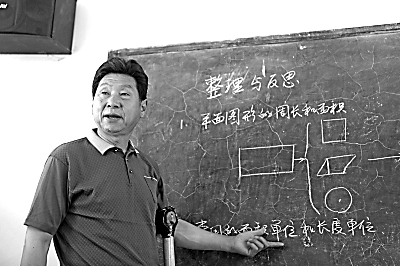 整理与反思
1、平面图形的周长和面积
面积单位和长度单位